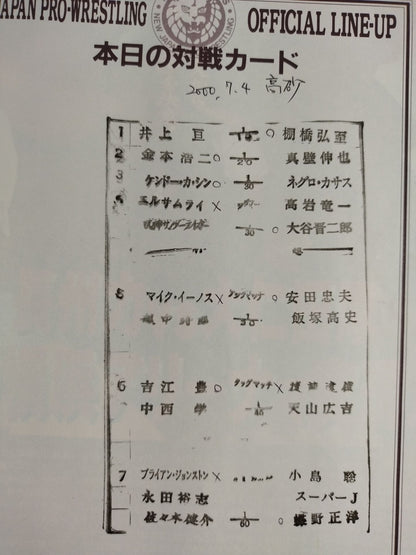 JAPAN PRO-WRESTLING OFFICIAL LINE-UP
本日の対戦カード
2000.7.4 高砂
1 井上亘 1/15 ○ 棚橋弘至
2 金本浩二○ 1/20 真壁伸也
3 ケンドー・カ・シン○ 1/30 ネグロ・カサス
4 エルサムライ× 高岩竜一
1/30 ○ 大谷晋二郎
5 マイク・イーノス× タッグマッチ ○ 安田忠夫
1/30 飯塚高史
6 吉江豊○ タッグマッチ×
中西学 天山広吉
7 ブライアン・ジョンストン× 小島聡
永田裕志 スーパーJ
佐々木健介 1/60 ○ 蝶野正洋